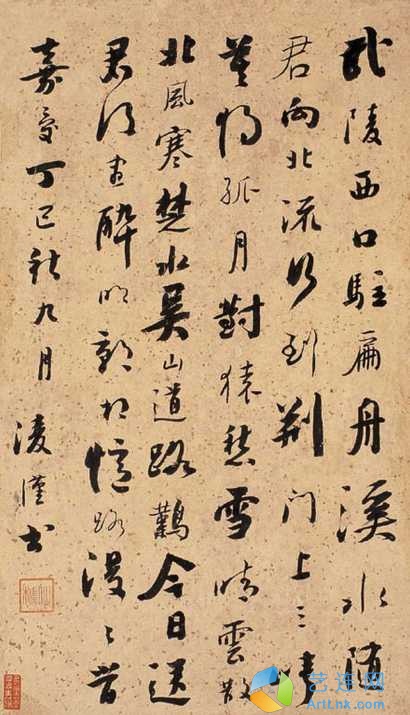 武陵西口駐扁舟溪水随
君向北流行到荆门上三峡
莫将孤月對猿愁雪晴雲散
北風寒楚水吴山道路難今日送
君须盡醉明朝相憶路漫々
嘉慶丁巳秋九月
書
艺连网
Artlk.net